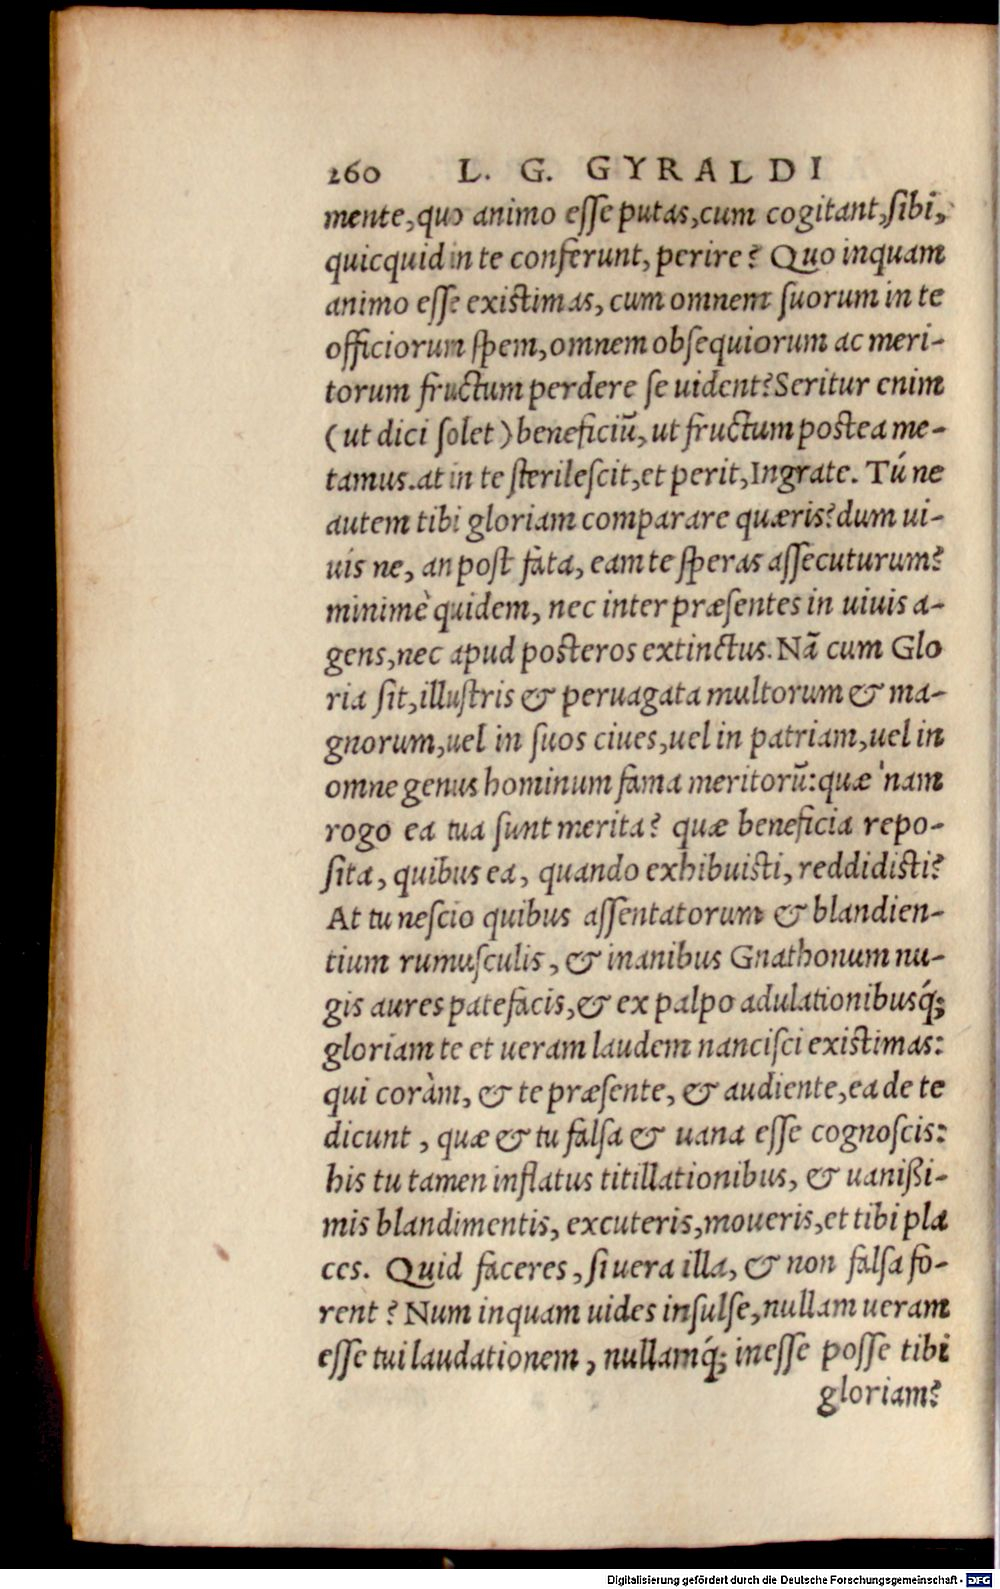 260 L. G. GYRALDI
mente, quo animo esse putas, cum cogitant, sibi,
quicquid in te conferunt, perire? Quo inquam
animo esse existimas, cum omnem suorum in te
officiorum spem, omnem obsequiorum ac meri-
torum fructum perdere se uident? Seritur enim
(ut dici solet) beneficiū, ut fructum postea me-
tamus. at in te sterilescit, et perit, Ingrate. Tú ne
autem tibi gloriam comparare quæris? dum ui-
uis ne, an post fata, eam te speras assecuturum?
minimè quidem, nec inter præsentes in uiuis a-
gens, nec apud posteros extinctus. Nā cum Glo
ria sit, illustris & peruagata multorum & ma-
gnorum, uel in suos ciues, uel in patriam, uel in
omne genus hominum fama meritorū: quæ nam
rogo ea tua sunt merita? quæ beneficia repo-
sita, quibus ea, quando exhibuisti, reddidisti?
At tu nescio quibus assentatorum & blandien-
tium rumusculis, & inanibus Gnathonum nu-
gis aures patefacis, & ex palpo adulationibusq́;
gloriam te et ueram laudem nancisci existimas:
qui coràm, & te præsente, & audiente, ea de te
dicunt, quæ & tu falsa & uana esse cognoscis:
his tu tamen inflatus titillationibus, & uanißi-
mis blandimentis, excuteris, moueris, et tibi pla
ces. Quid faceres, si uera illa, & non falsa fo-
rent? Num inquam uides insulse, nullam ueram
esse tui laudationem, nullamq́; inesse posse tibi
gloriam?
Digitalisierung gefördert durch die Deutsche Forschungsgemeinschaft - DFG